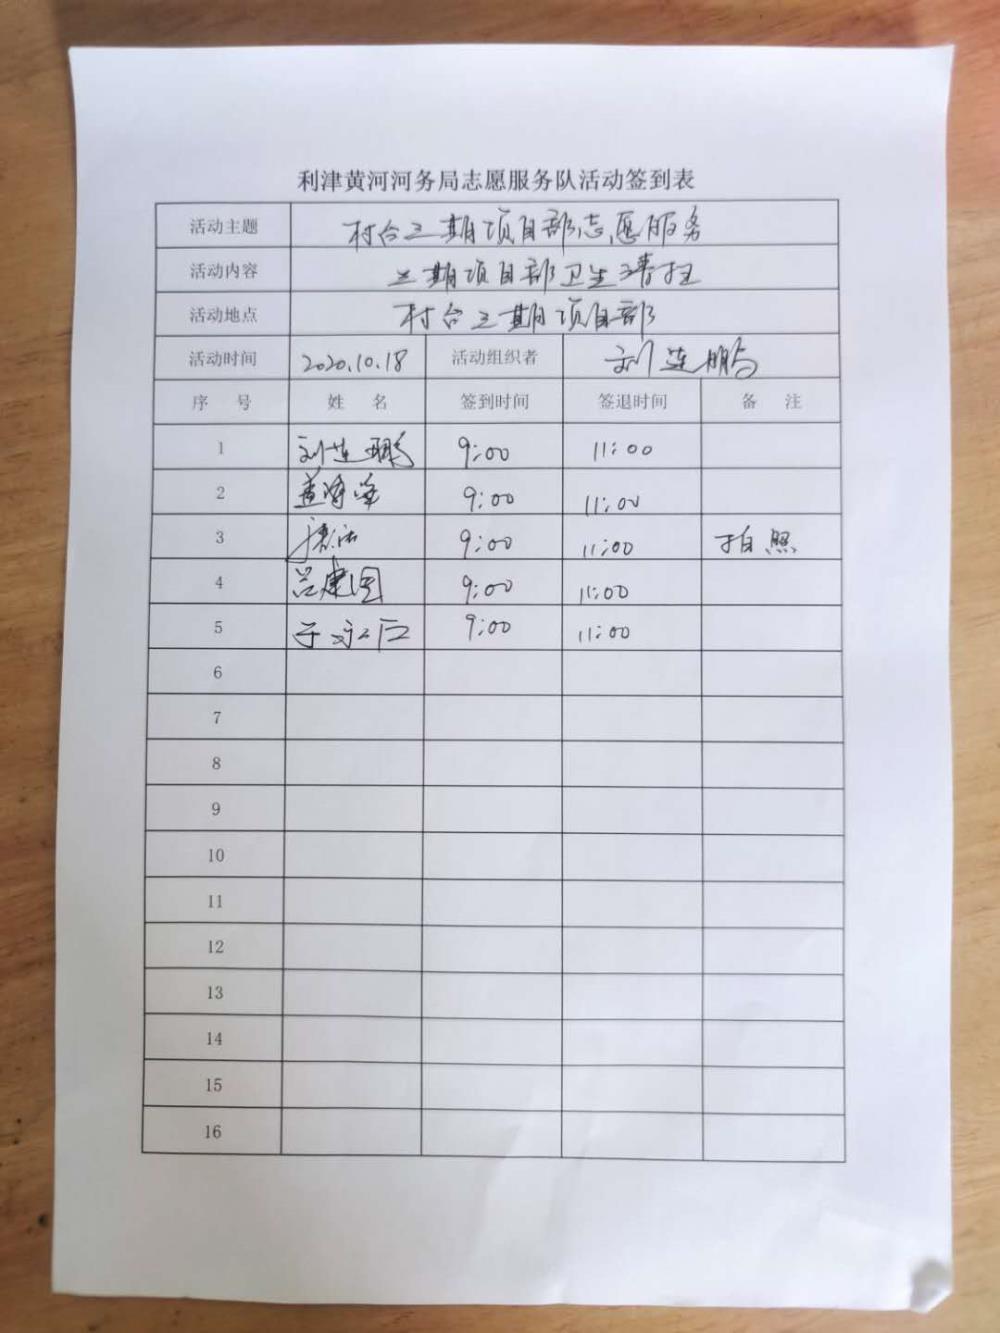 利津黄河河务局志愿服务队活动签到表
活动主题 村台三期项目部志愿服务
活动内容 三期项目部卫生清扫
活动地点 村台三期项目部
活动时间 2020.10.18 活动组织者 刘连鹏
序 号 姓 名 签到时间 签退时间 备 注
1 刘连鹏 9:00 11:00
2 9:00 11:00
3 9:00 11:00 拍照
4 吕建国 9:00 11:00
5 9:00 11:00
6
7
8
9
10
11
12
13
14
15
16